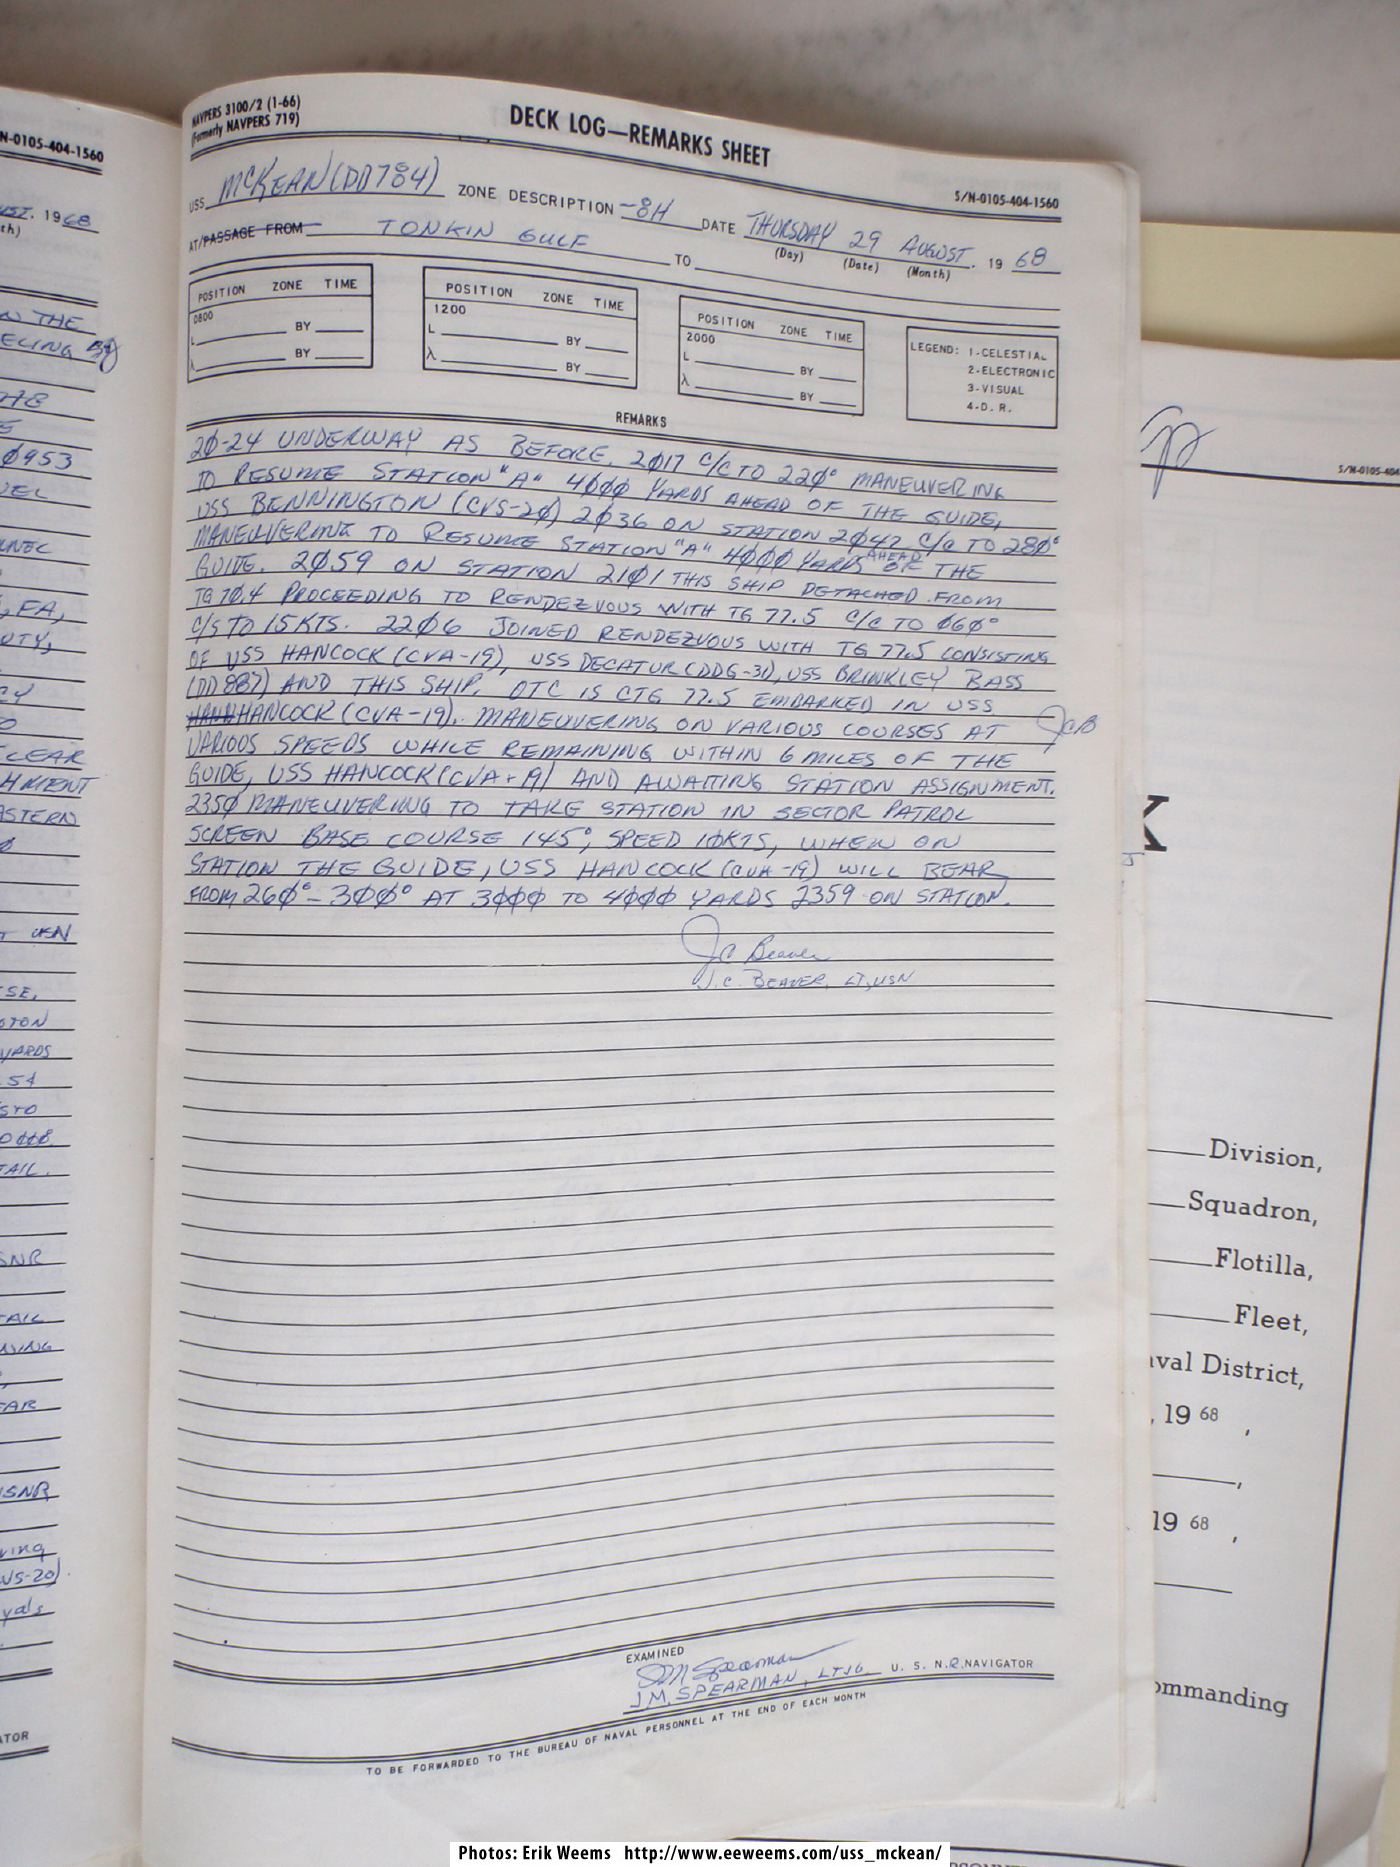 N-0105-404-1560
UST. 1968
th)
N THE
ELING
THE
0953
UEL
NNEL
, FA,
UTY,
CY
O
CLEAR
HMENT
ASTERN
0
T USN
SE,
GTON
YARDS
54
TAIL.
SNR
TAIL
VING
EAR
USNR
ving
VS-20).
yals
ATOR
NAVPERS 3100/2 (1-66)
(Formerly NAVPERS 719)
DECK LOG—REMARKS SHEET
S/N-0105-404-1560
USS MCKEAN (DD784) ZONE DESCRIPTION -8H DATE THURSDAY 29 AUGUST. 1968
(Day) (Date) (Month)
AT/PASSAGE FROM TONKIN GULF TO
POSITION ZONE TIME
0800
L BY
λ BY
POSITION ZONE TIME
1200
L BY
λ BY
POSITION ZONE TIME
2000
L BY
λ BY
LEGEND: 1-CELESTIAL
2-ELECTRONIC
3-VISUAL
4-D. R.
REMARKS
20-24 UNDERWAY AS BEFORE. 2017 C/C TO 220° MANEUVERING
TO RESUME STATION "A" 4000 YARDS AHEAD OF THE GUIDE,
USS BENNINGTON (CVS-20) 2036 ON STATION 2042 C/C TO 280°
MANEUVERING TO RESUME STATION "A" 4000 YARDS AHEAD OF THE
GUIDE. 2059 ON STATION 2101 THIS SHIP DETACHED FROM
TG 70.4 PROCEEDING TO RENDEZVOUS WITH TG 77.5 C/C TO 060°
C/S TO 15 KTS. 2206 JOINED RENDEZVOUS WITH TG 77.5 CONSISTING
OF USS HANCOCK (CVA-19), USS DECATUR (DDG-31), USS BRINKLEY BASS
(DD 887) AND THIS SHIP. OTC IS CTG 77.5 EMBARKED IN USS
HANN HANCOCK (CVA-19). MANEUVERING ON VARIOUS COURSES AT JCB
VARIOUS SPEEDS WHILE REMAINING WITHIN 6 MILES OF THE
GUIDE, USS HANCOCK (CVA-19) AND AWAITING STATION ASSIGNMENT.
2350 MANEUVERING TO TAKE STATION IN SECTOR PATROL
SCREEN BASE COURSE 145°, SPEED 10KTS, WHEN ON
STATION THE GUIDE, USS HANCOCK (CVA-19) WILL BEAR
FROM 260° - 300° AT 3000 TO 4000 YARDS 2359 ON STATION.
JC Beaver
J.C. BEAVER, LT, USN
EXAMINED
JM Spearman
J.M. SPEARMAN, LTJG U. S. N.R. NAVIGATOR
TO BE FORWARDED TO THE BUREAU OF NAVAL PERSONNEL AT THE END OF EACH MONTH
S/N-0105-404
K
Division,
Squadron,
Flotilla,
Fleet,
aval District,
, 19 68 ,
,
19 68 ,
ommanding
Photos: Erik Weems http://www.eeweems.com/uss_mckean/